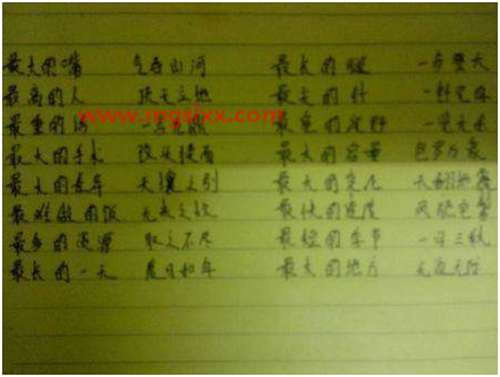 最大的嘴 气吞山河 最长的腿 一步登天
最高的人 顶天立地 最大的针
最重的话 最宽的视野 一览无余
最大的手术 改头换面 最大的容量 包罗万象
最大的差异 天壤之别 最大的变化 天翻地覆
最难做的饭 无米之炊 最快的速度 风驰电掣
最多的资源 取之不尽 最短的季节 一日三秋
最长的一天 度日如年 最大的地方 无边无际